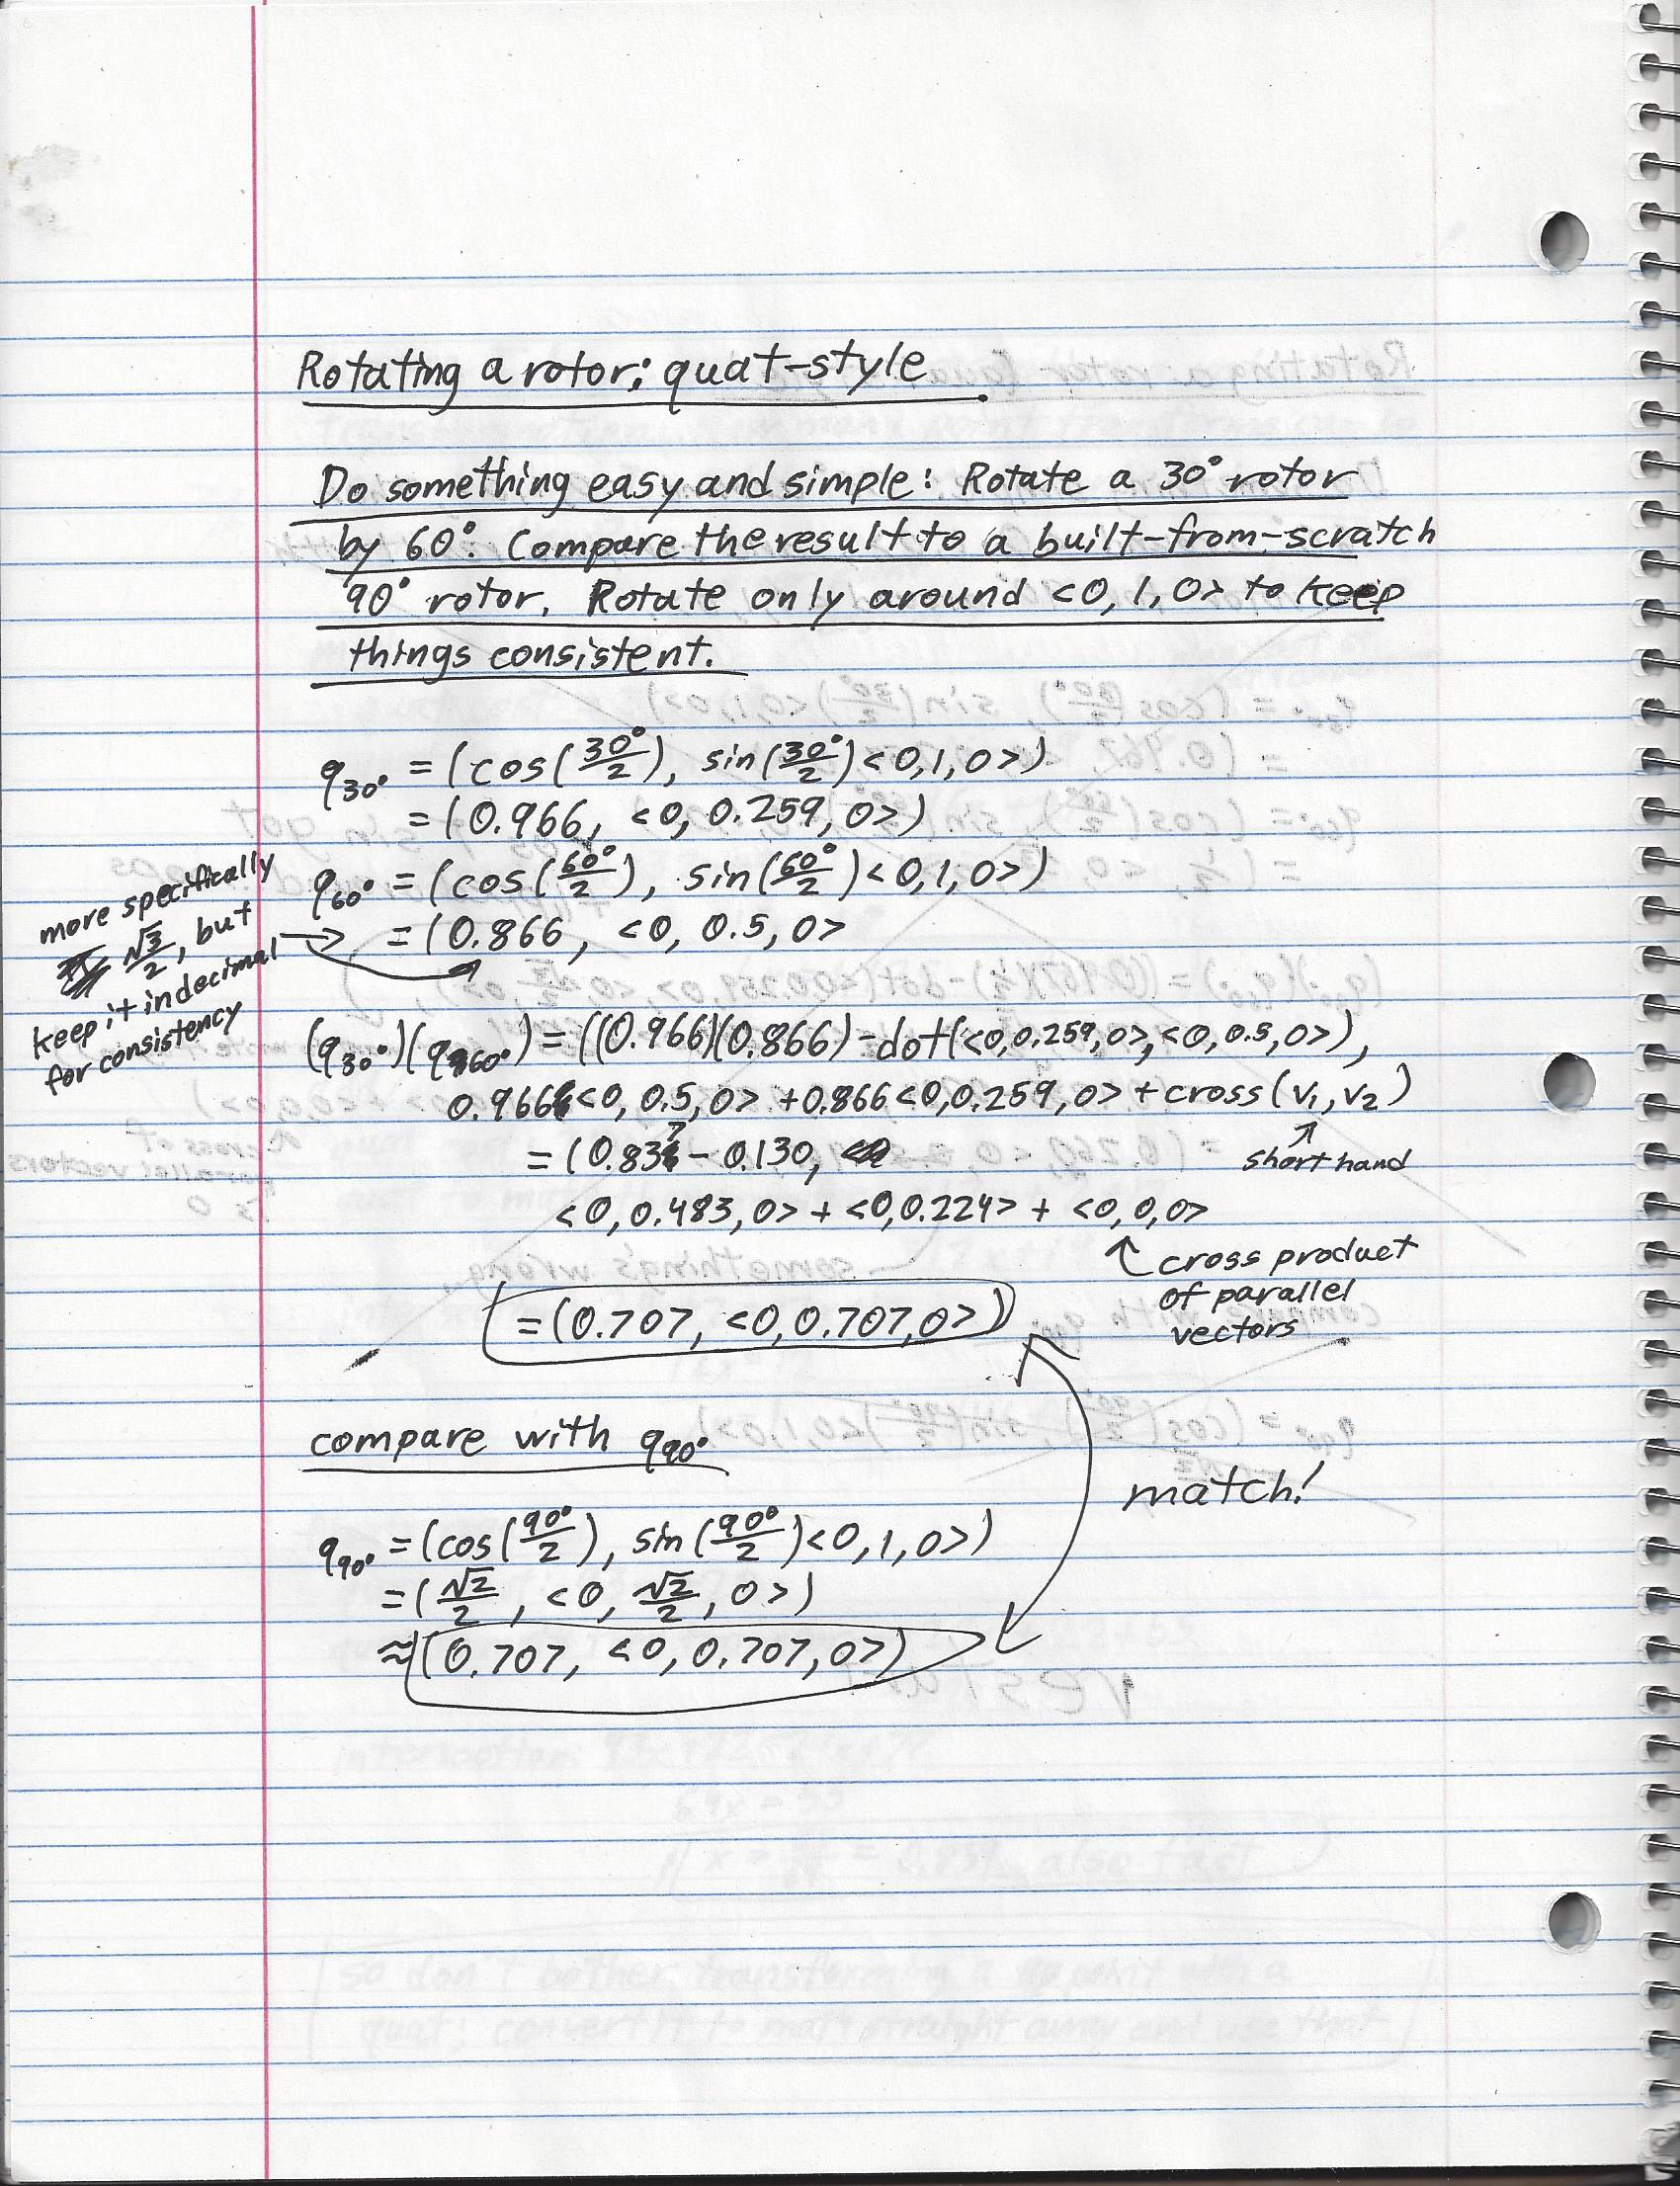 Rotating a rotor; quat-style
Do something easy and simple: Rotate a 30° rotor
by 60°. Compare the result to a built-from-scratch
90° rotor. Rotate only around <0, 1, 0> to keep
things consistent.
q30° = (cos(30°/2), sin(30°/2)<0,1,0>)
= (0.966, <0, 0.259, 0>)
q60° = (cos(60°/2), sin(60°/2)<0,1,0>)
= (0.866, <0, 0.5, 0>
more specifically
√3/2, but
keep it in decimal
for consistency
(q30°)(q60°) = ((0.966)(0.866) - dot(<0,0.259,0>,<0,0.5,0>),
0.966<0, 0.5, 0> + 0.866<0,0.259,0> + cross(v1,v2)
short hand
= (0.837 - 0.130,
<0,0.483,0> + <0,0.224> + <0,0,0>
cross product
of parallel
vectors
= (0.707, <0,0.707,0>)
compare with q90°
match!
q90° = (cos(90°/2), sin(90°/2)<0,1,0>)
= (√2/2, <0, √2/2, 0>)
≈ (0.707, <0, 0.707, 0>)